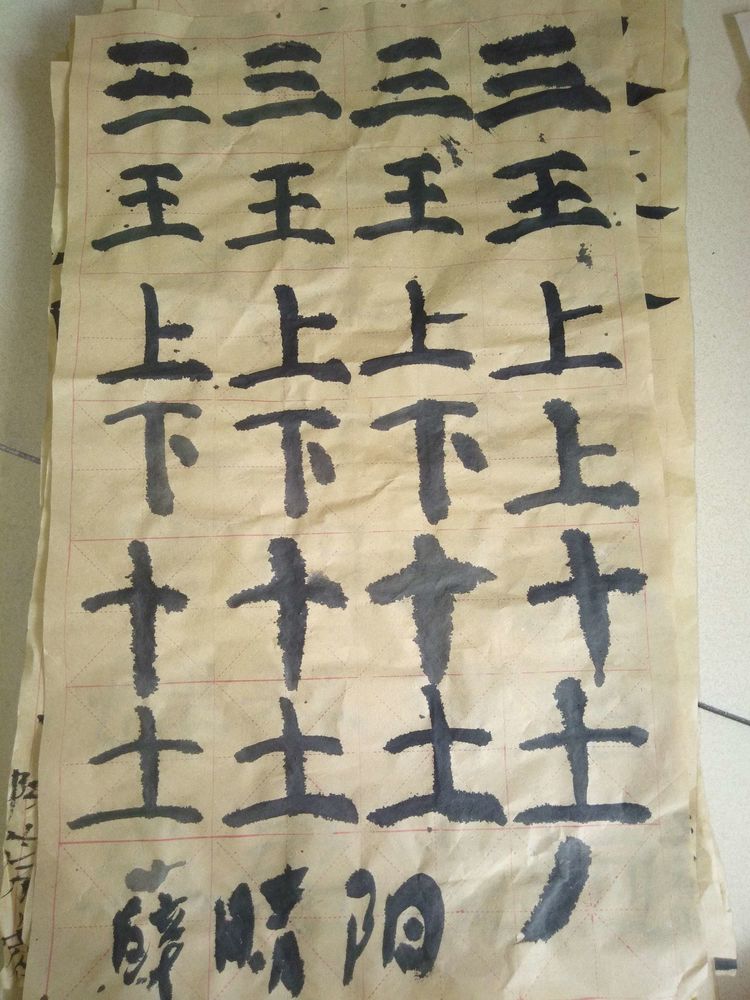 三三三三
王王王王
上上上上
下下下上
十十十十
土土土土
晴阳